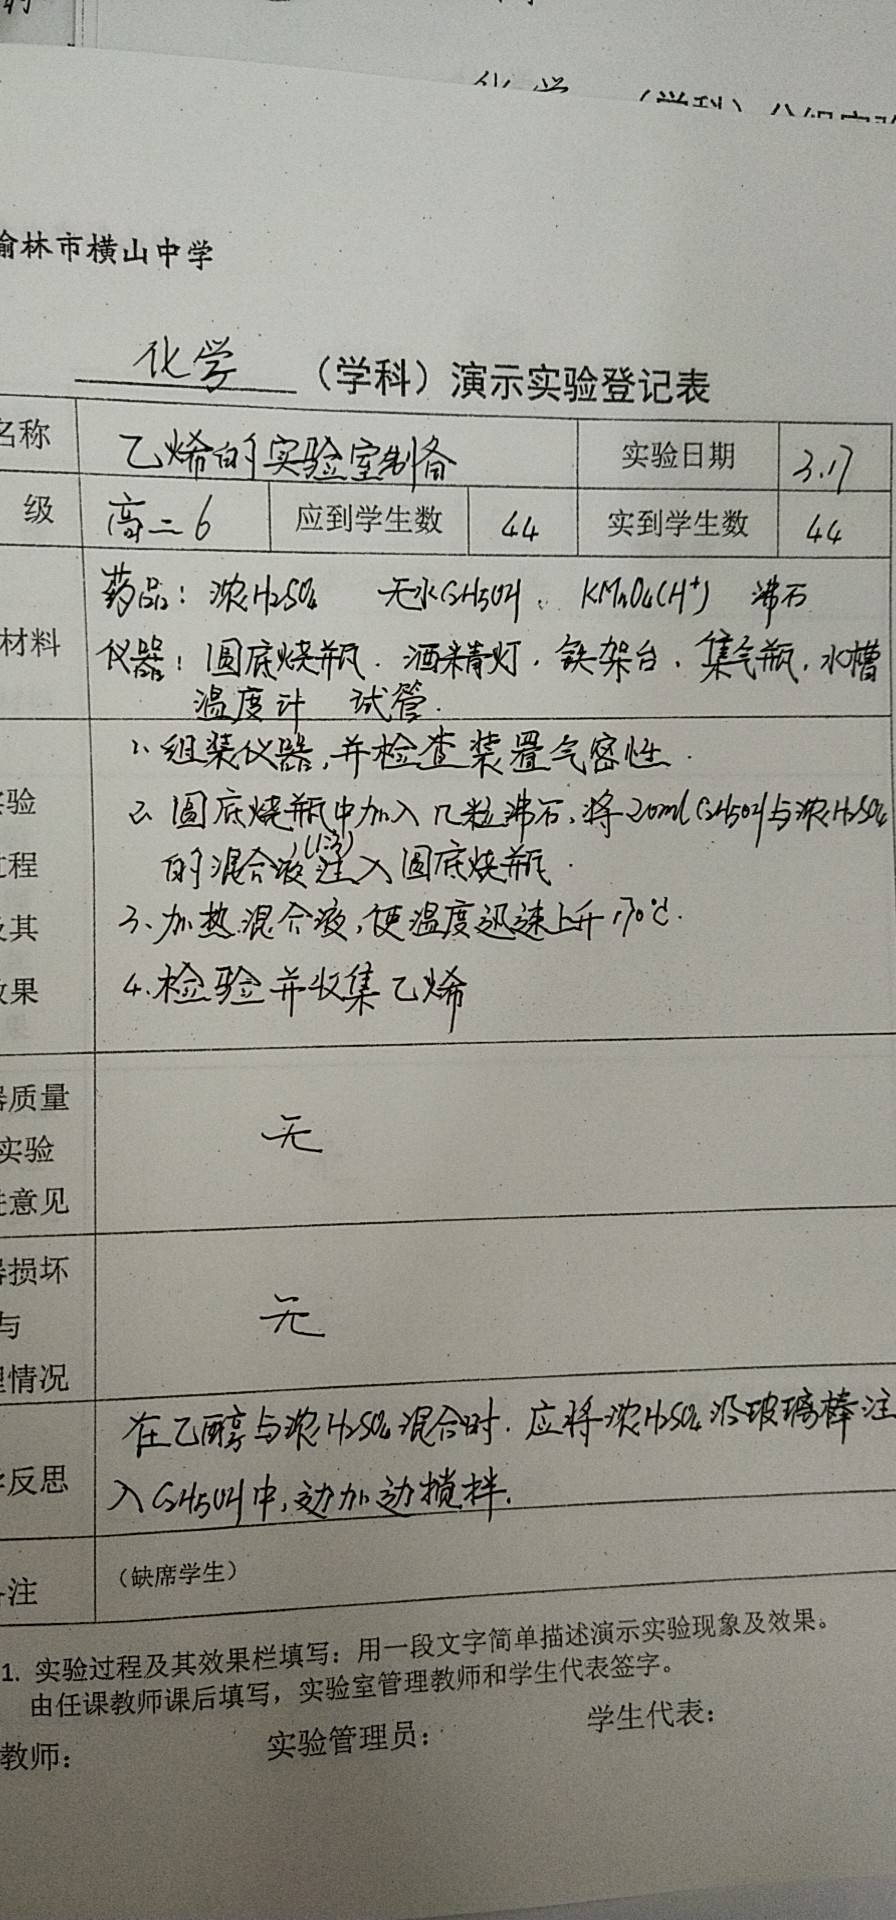 化学 （学科）分组实验
榆林市横山中学
化学 （学科）演示实验登记表
名称 乙烯的实验室制备 实验日期 3.17
级 高二6 应到学生数 44 实到学生数 44
药品：浓H2SO4 无水C2H5OH、KMnO4(H⁺) 沸石
材料 仪器：圆底烧瓶．酒精灯．铁架台、集气瓶．水槽
温度计 试管．
1、组装仪器，并检查装置气密性．
实验 2、圆底烧瓶中加入几粒沸石，将20ml C2H5OH与浓H2SO4
(1:3)
过程 的混合液注入圆底烧瓶．
及其 3、加热混合液，使温度迅速上升170℃．
效果 4.检验并收集乙烯
器质量
实验 无
意见
器损坏
与 无
理情况
在乙醇与浓H2SO4混合时．应将浓H2SO4沿玻璃棒注
学反思 入C2H5OH中，边加边搅拌．
注 （缺席学生）
1. 实验过程及其效果栏填写：用一段文字简单描述演示实验现象及效果。
由任课教师课后填写，实验室管理教师和学生代表签字。
教师： 实验管理员： 学生代表：